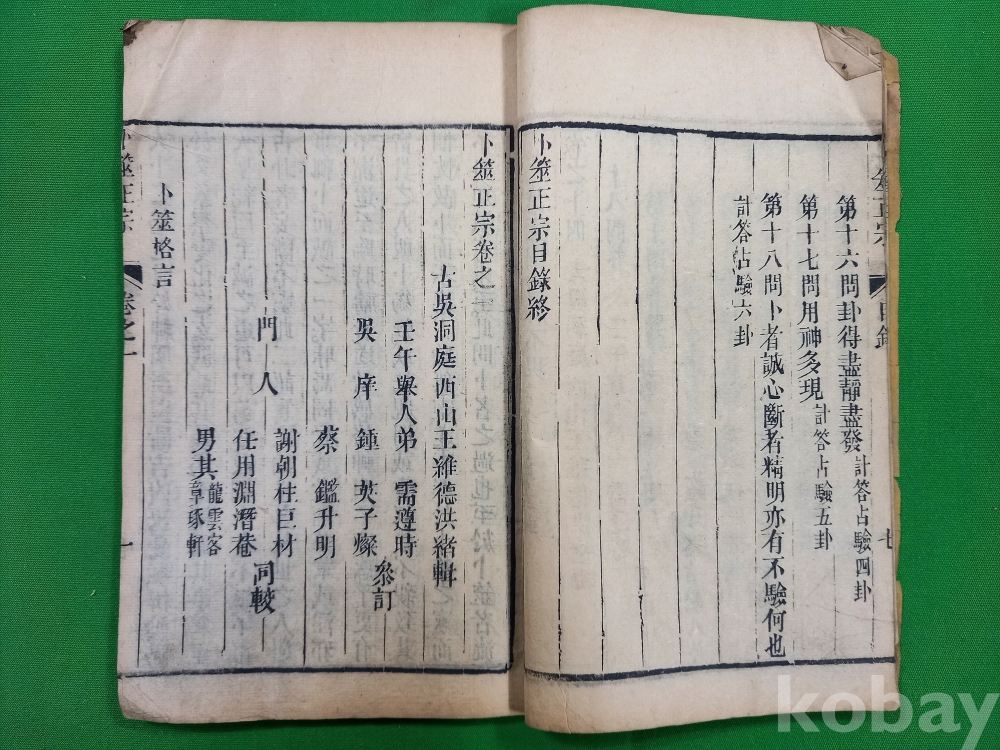 卜筮正宗 目錄 七
第十六問卦得盡靜盡發 計答占驗四卦
第十七問用神多現 計答占驗五卦
第十八問卜者誠心斷者精明亦有不驗何也
計答占驗六卦
卜筮正宗目錄終
卜筮正宗卷之一
古吳洞庭西山王維德洪緒輯
壬午舉人弟 需遵時
吳庠 鍾英子燦 參訂
蔡鑑升明
謝朝柱巨材
門人
任用淵潛菴 同較
男其龍雲客
章琢軒
卜筮格言
卜筮正宗 卷之一 一
kobay